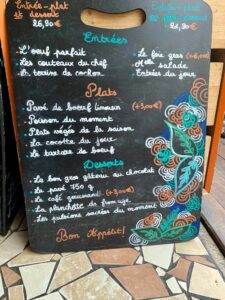 Entrée - plat
Entrées
L'oeuf parfait
Les couteaux du chef
La terrine de cochon
Le foie gras (+6,00€)
salade
Entrées du jour
Plats
Pavé de boeuf limousin (+3,00€)
Poisson du moment
Plats végés de la saison
La cocotte du jour
Le tartare de boeuf
Desserts
Le bon gros gâteau au chocolat
Le pavé 750g
Le café gourmand (+3,00€)
La planchette de fromage
Les pulsions sucrées du moment
Bon Appétit!